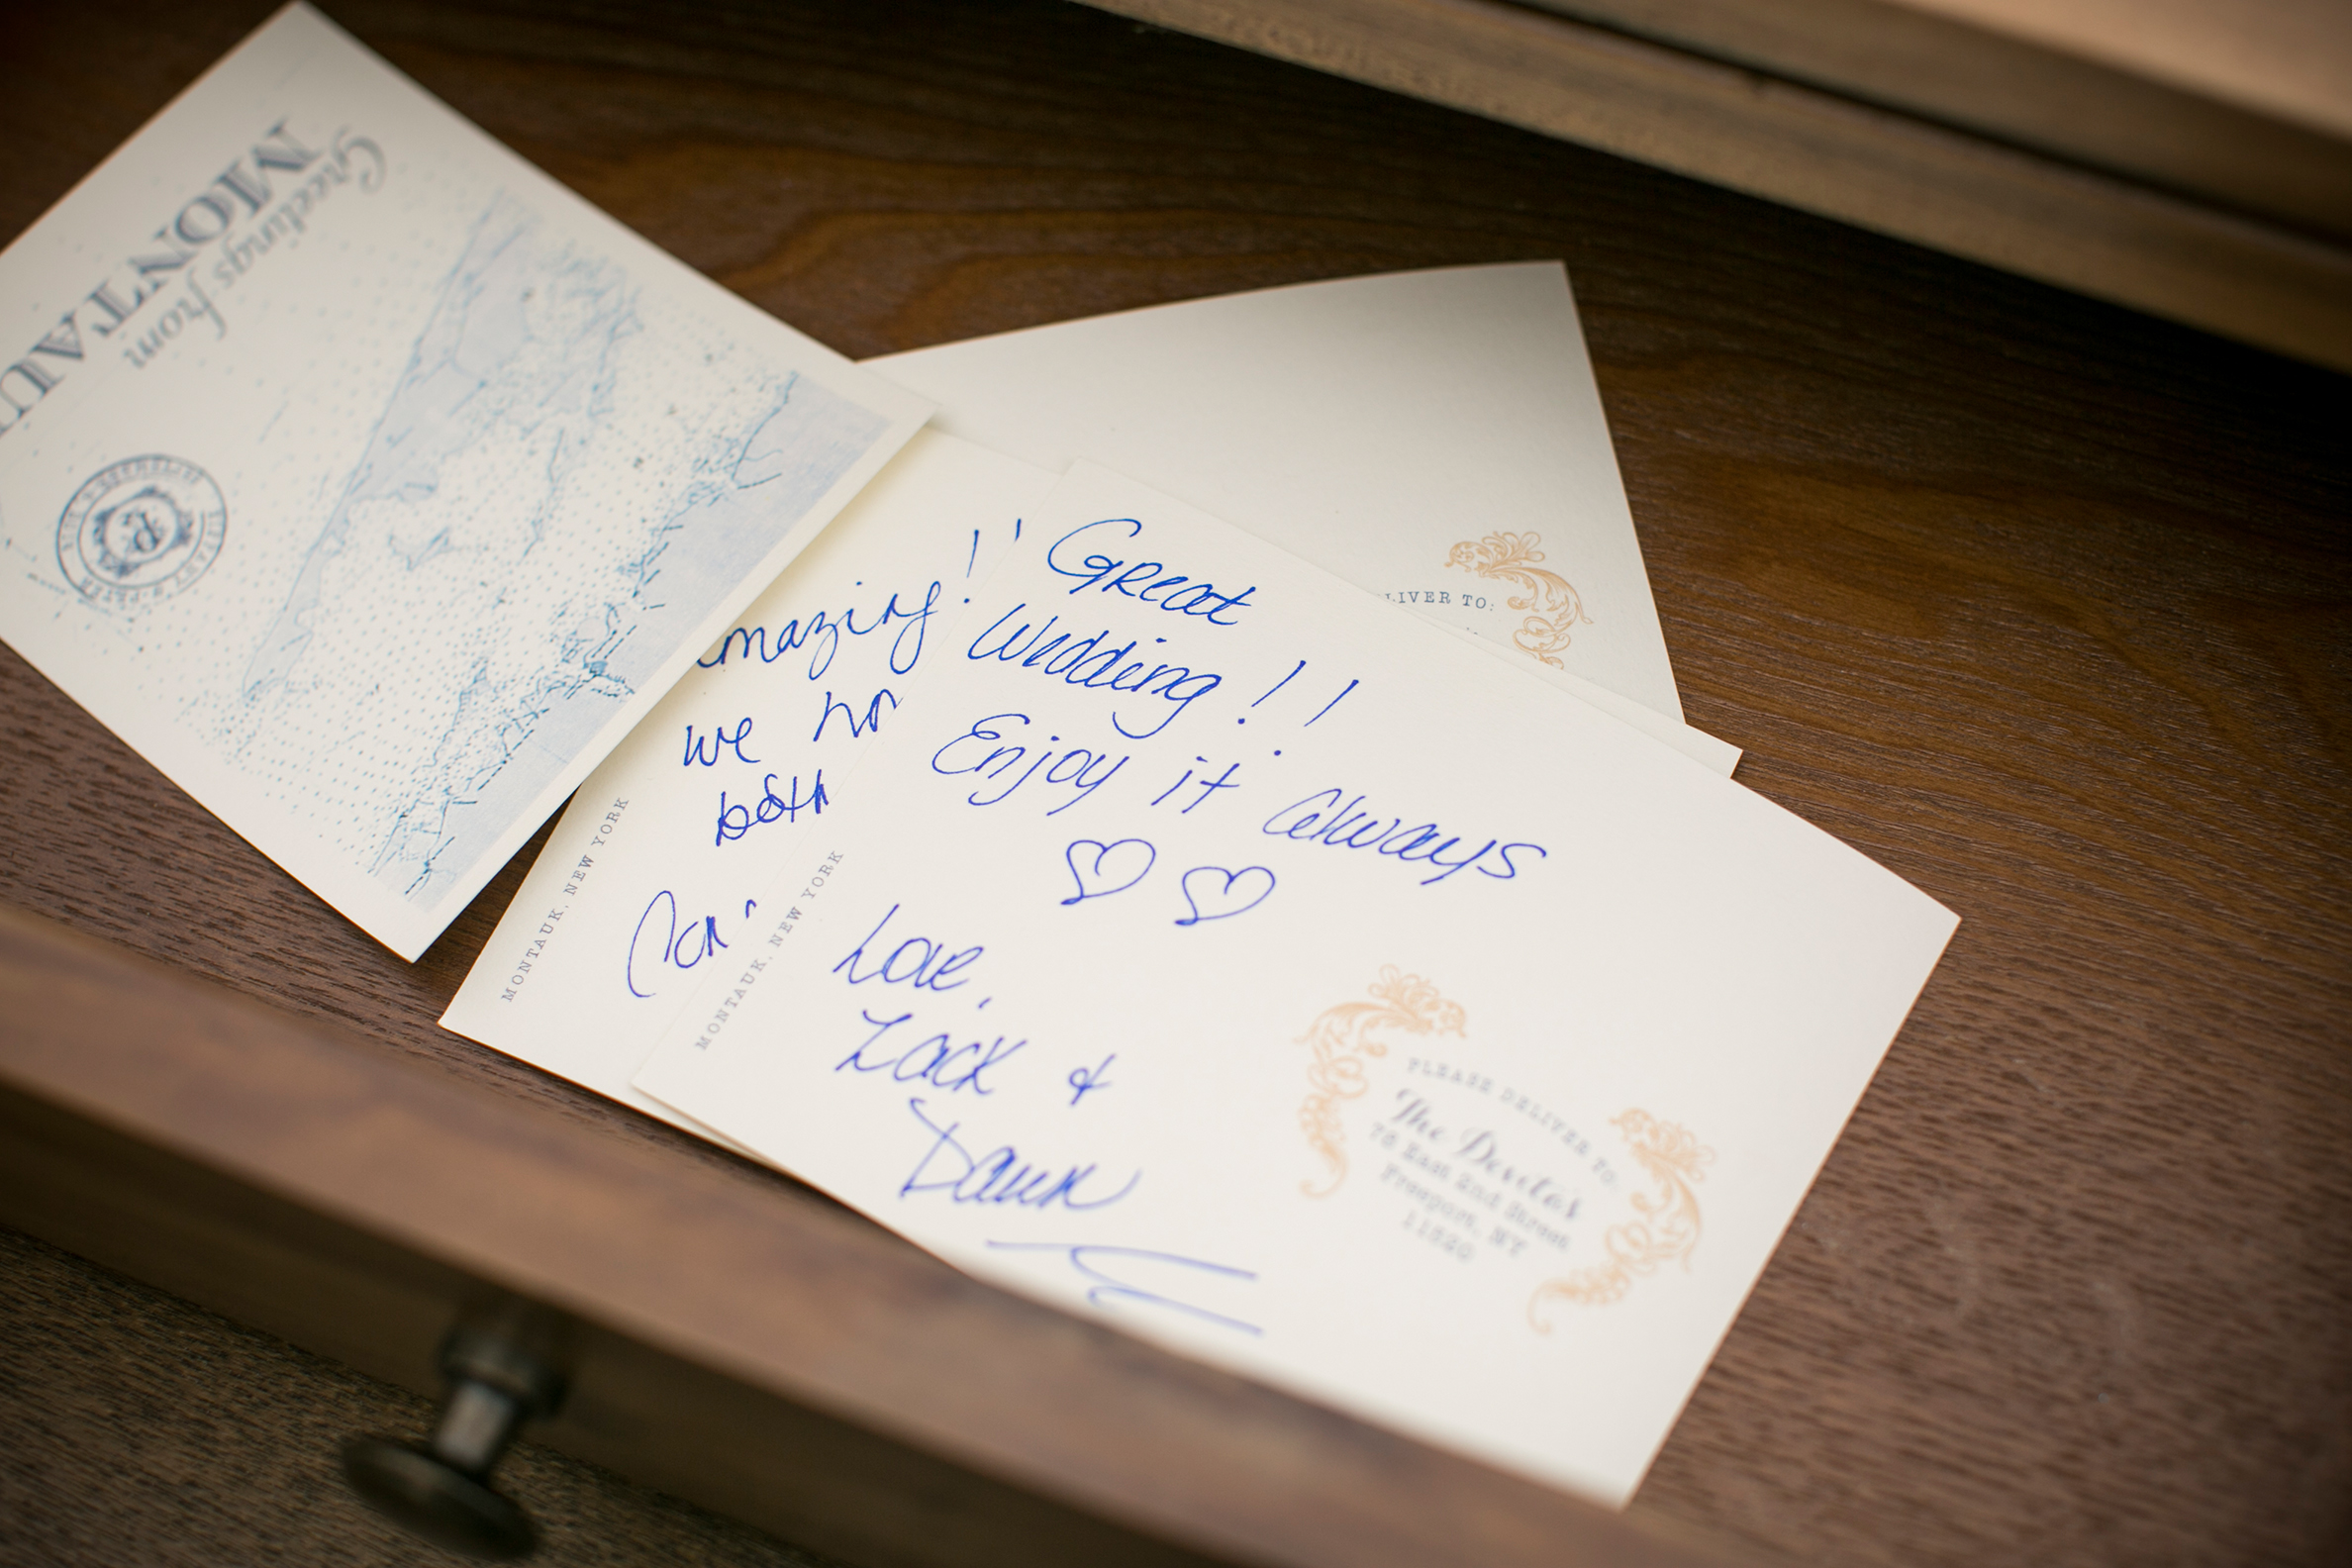 Greetings from
MONTAU
LIVER TO:
mazing!!
we ho
both
MONTAUK, NEW YORK
Great
Wedding!!
Enjoy it always
Love,
Zack &
Dawn
MONTAUK, NEW YORK
PLEASE DELIVER TO:
The Devito's
76 East 2nd Street
Freeport, NY
11520